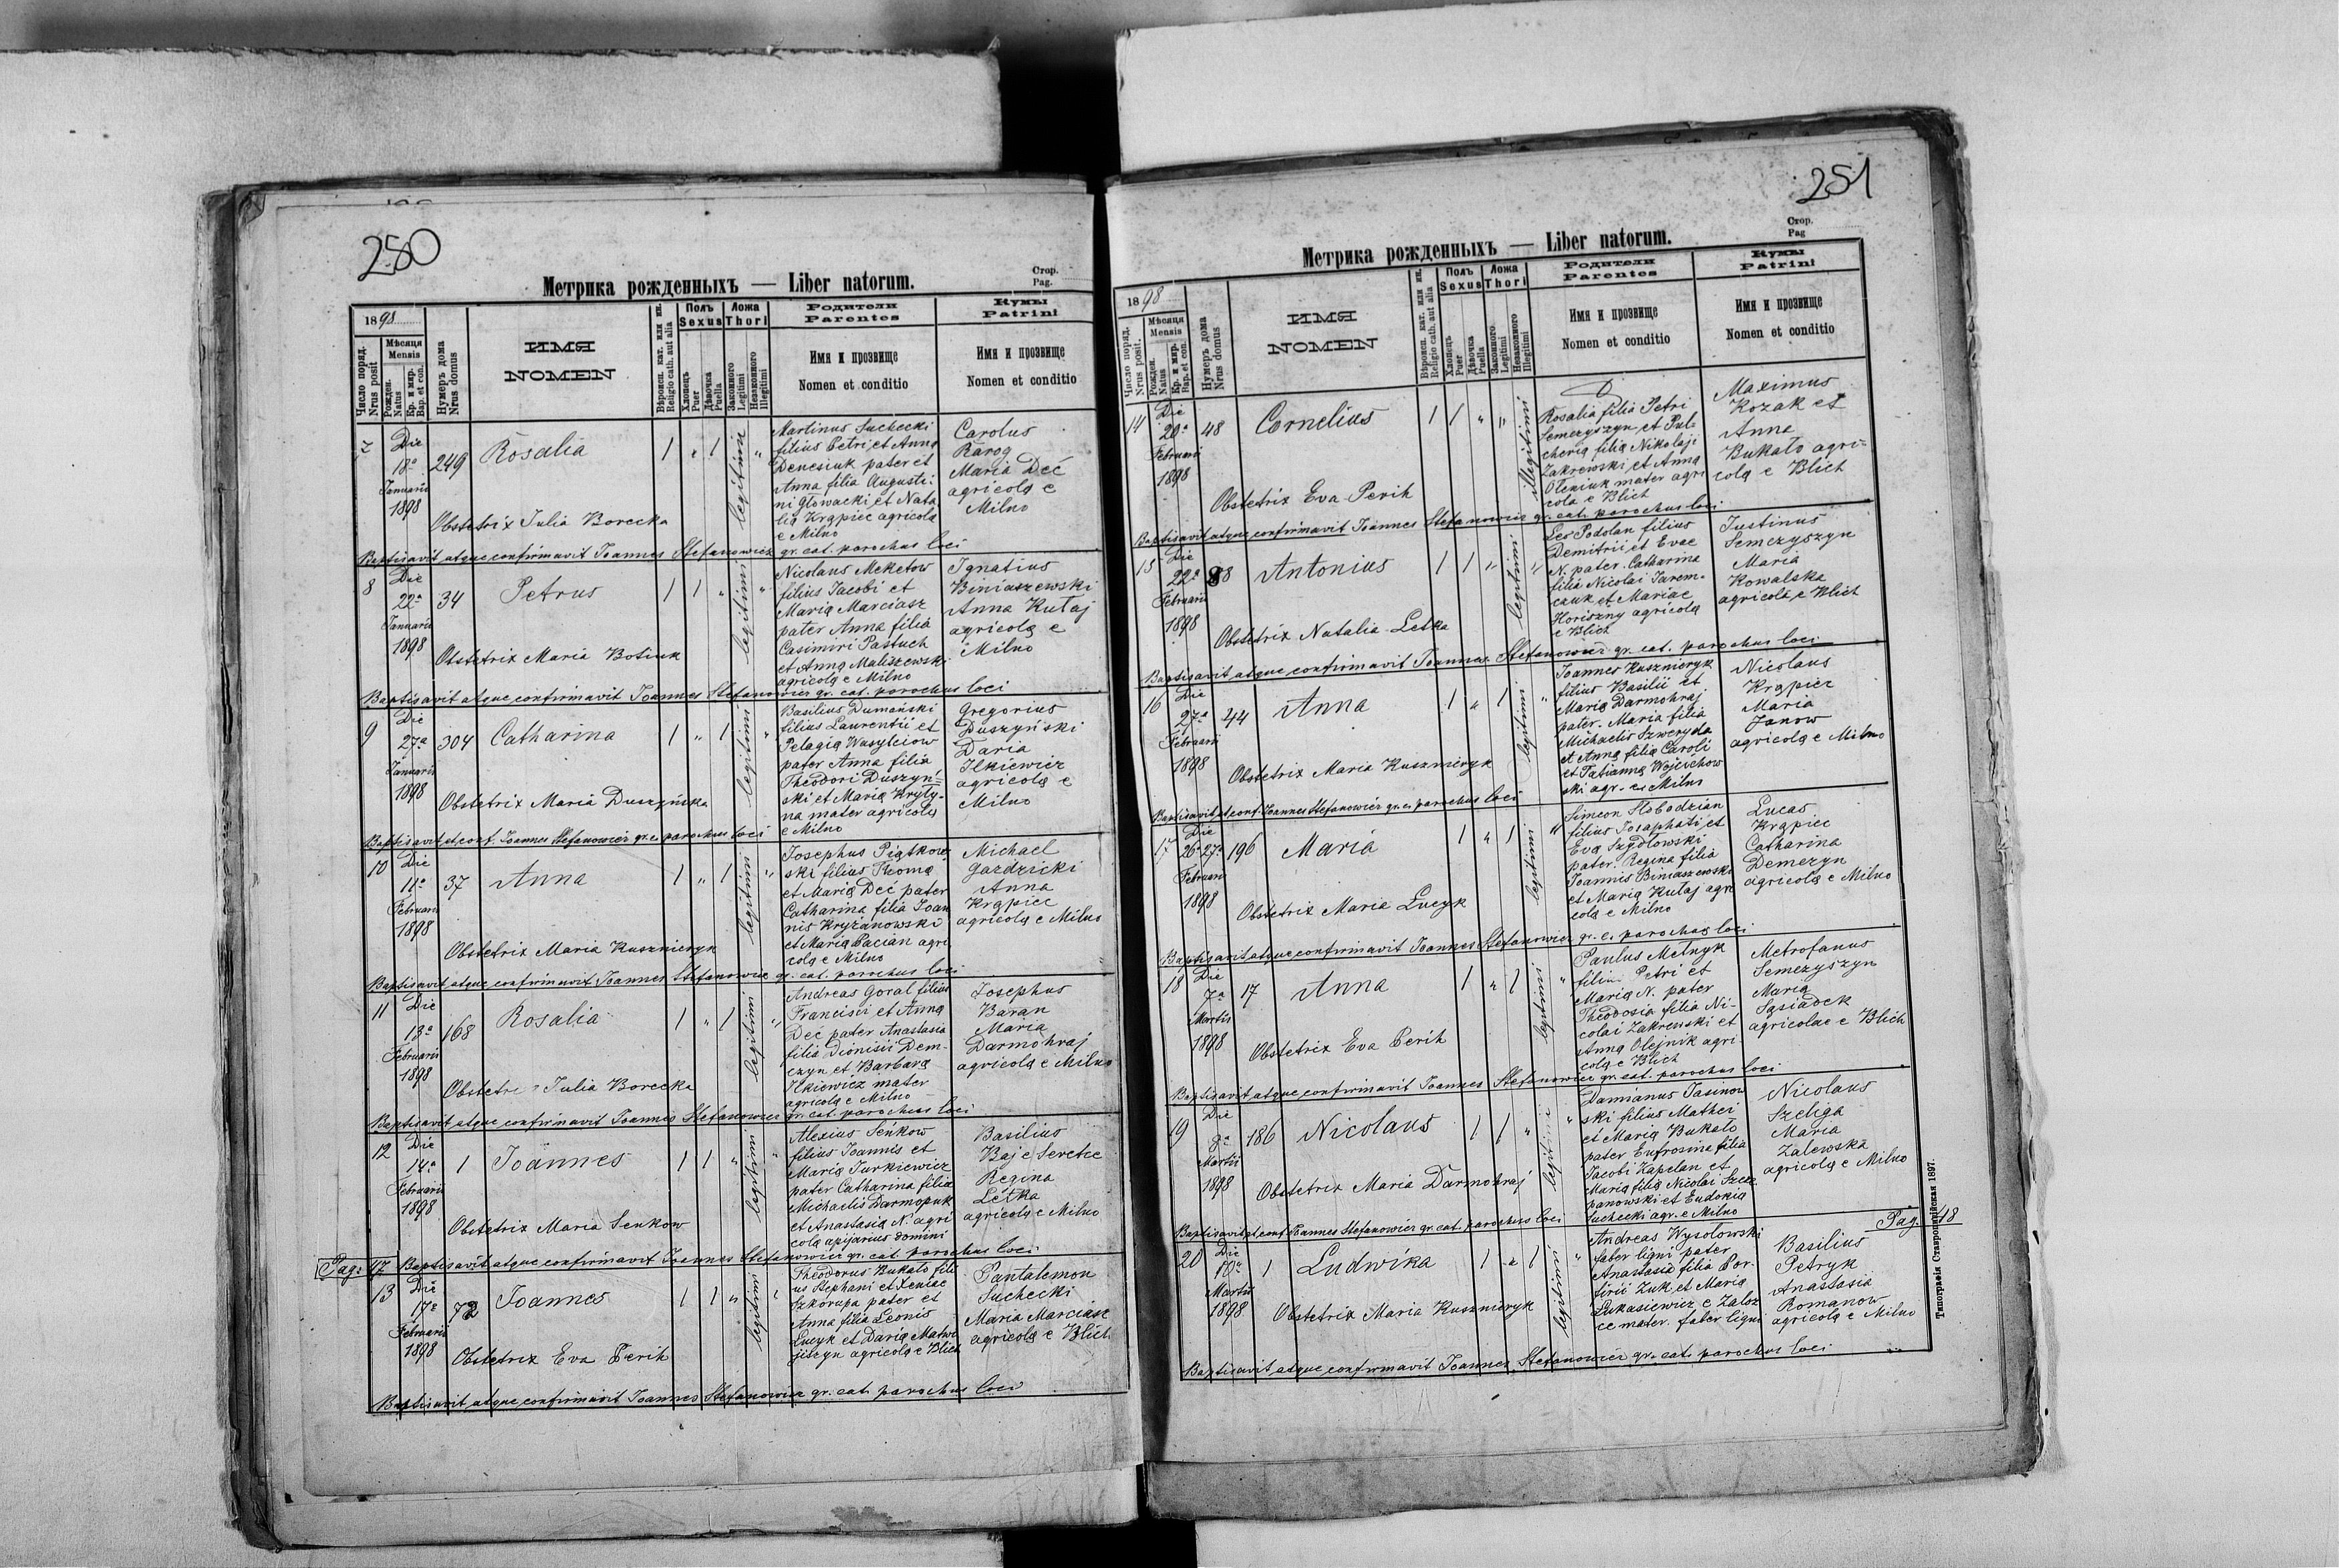 250
Метрика рожденныхъ — Liber natorum.
Стор.
Pag.
1898
Число поряд.
Nrus posit
Мѣсяця
Mensis
Рожден.
Natus
Кр. и мир.
Bap. et con.
Нумеръ дома
Nrus domus
ИМЯ
NOMEN
Вѣроисп. кат. или ин.
Religio cath. aut alia
Полъ
Sexus
Хлопецъ
Puer
Дѣвочка
Puella
Ложа
Thori
Законного
Legitimi
Незаконного
Illegitimi
Родители
Parentes
Имя и прозвище
Nomen et conditio
Кумы
Patrini
Имя и прозвище
Nomen et conditio
7 Die 18a Januarii 1898 249 Rosalia 1 „ 1 legitimi „
Martinus Suchecki
filius Petri et Anna
Denesiuk pater et
Anna filia Augusti-
ni Głowacki et Nata
lią Krąpiec agricolą
e Milno
Carolus
Rarog
Maria Deć
agricolą e
Milno
Obstetrix Julia Borecka
Baptisavit atque confirmavit Joannes Stefanowicz gr. cat. parochus loci
8 Die 22a Januarii 1898 34 Petrus 1 1 „ legitimi „
Nicolaus Meketow
filius Jacobi et
Marią Marciasz
pater Anna filia
Casimiri Pastuch
et Anną Maliszewski
agricolą e Milno
Ignatius
Biniaszewski
Anna Kutaj
agricolą e
Milno
Obstetrix Maria Botiuk
Baptisavit atque confirmavit Joannes Stefanowicz gr. cat. parochus loci
9 Die 27a Januarii 1898 304 Catharina 1 „ 1 legitimi „
Basilius Dumański
filius Laurentii et
Pelagią Wasylciow
pater Anna filia
Theodori Duszyń=
ski et Marią Kryty-
na mater agricolą
e Milno
Gregorius
Duszyński
Daria
Ilkiewicz
agricolą e
Milno
Obstetrix Maria Duszyńska
Baptisavit et conf. Joannes Stefanowicz gr. c. parochus loci
10 Die 11a Februarii 1898 37 Anna 1 „ 1 legitimi „
Josephus Piątkow
ski filius Thoma
et Marią Deć pater
Catharina filia Joan
nis Kryżanowski
et Marią Pacian agri
colą e Milno
Michael
Gazdzicki
Anna
Krąpiec
agricolą e Milno
Obstetrix Maria Kusznieryk
Baptisavit atque confirmavit Joannes Stefanowicz gr. cat. parochus loci
11 Die 13a Februarii 1898 168 Rosalia 1 „ 1 legitimi „
Andreas Goral filius
Francisii et Anną
Deć pater Anastasia
filia Dionisii Dem-
czyn et Barbarą
Ilkiewicz mater
agricolą e Milno
Josephus
Baran
Maria
Darmohraj
agricolą e Milno
Obstetrix Julia Borecka
Baptisavit atque confirmavit Joannes Stefanowicz gr. cat. parochus loci
12 Die 14a Februarii 1898 1 Joannes 1 1 „ legitimi „
Alexius Seńkow
filius Joannis et
Marią Jurkiewicz
pater Catharina filia
Michaelis Darmopuk
et Anastasią N. agri
cola apijarius domini
Basilius
Baj e Seretec
Regina
Letka
agricolą e Milno
Obstetrix Maria Senkow
Pag: 17 Baptisavit atque confirmavit Joannes Stefanowicz gr. cat. parochus loci
13 Die 17a Februarii 1898 72 Joannes 1 1 „ legitimi
Theodorus Bukało fili
us Stephani et Xeniae
Szkorupa pater et
Anna filia Leonis
Lucyk et Darią Matwi
jiszyn agricolą e Blich
Pantalemon
Suchecki
Maria Marciasz
agricolą e Blich
Obstetrix Eva Perih
Baptisavit atque confirmavit Joannes Stefanowicz gr. cat. parochus loci
251
Метрика рожденныхъ — Liber natorum.
Стор.
Pag
1898
Число поряд.
Nrus posit.
Мѣсяця
Mensis
Рожден.
Natus
Кр. и мир.
Bap. et con.
Нумеръ дома
Nrus domus
ИМЯ
NOMEN
Вѣроисп. кат. или ин.
Religio cath. aut alia
Полъ
Sexus
Хлопецъ
Puer
Дѣвочка
Puella
Ложа
Thori
Законного
Legitimi
Незаконного
Illegitimi
Родители
Parentes
Имя и прозвище
Nomen et conditio
Кумы
Patrini
Имя и прозвище
Nomen et conditio
14 Die 20a Februarii 1898 48 Cornelius 1 1 „ „ illegitimi
Rosalia filia Petri
Semczyszyn et Pul=
cherią filią Nikolaji
Zakrewski et Anną
Olexiuk mater agri
cola e Blich
Maximus
Kozak et
Anna
Bukało agri=
colą e Blich
Obstetrix Eva Perih
Baptisavit atque confirmavit Joannes Stefanowicz gr. cat. parochus loci
15 Die 22a Februarii 1898 88 Antonius 1 1 „ legitimi „
Leo Podolan filius
Demitrii et Evae
N. pater. Catharina
filia Nicolai Jarem-
czuk et Mariae
Horiszny agricolą
e Blich
Justinus
Semczyszyn
Maria
Kowalska
agricolą e Blich
Obstetrix Natalia Letka
Baptisavit atque confirmavit Joannes Stefanowicz gr. cat. parochus loci
16 Die 27a Februarii 1898 44 Anna 1 „ 1 legitimi „
Joannes Kusznieryk
filius Basilii et
Marią Darmohraj
pater. Maria filia
Michaelis Szweryda
et Anną filią Caroli
et Tatianną Wojcichow
ski agr. e Milno
Nicolaus
Krąpiec
Maria
Janow
agricolą e Milno
Obstetrix Maria Kusznieryk
Baptisavit et conf. Joannes Stefanowicz gr. c. parochus loci
17 Die 26a 27a Februarii 1898 196 Maria 1 „ 1 legitimi „
Simeon Slobodzian
filius Josaphati et
Evą Szydłowski
pater. Regina filia
Joannis Biniaszewski
et Marią Kutaj agri
colą e Milno
Lucas
Krąpiec
Catharina
Demczyn
agricolą e Milno
Obstetrix Maria Lucyk
Baptisavit atque confirmavit Joannes Stefanowicz gr. c. parochus loci
18 Die 7a Martii 1898 17 Anna 1 „ 1 legitimi „
Paulus Melnyk
filius Petri et
Marią N. pater
Theodosia filia Ni-
colai Zakrewski et
Anną Olejnik agri
colą e Blich
Metrofanus
Semczyszyn
Maria
Sąsiadek
agricolae e Blich
Obstetrix Eva Perih
Baptisavit atque confirmavit Joannes Stefanowicz gr. cat. parochus loci
19 Die 8a Martii 1898 186 Nicolaus 1 1 „ legitimi „
Damianus Jasinow
ski filius Mathei
et Marią Bukało
pater Eufrosina filia
Jacobi Kapelan et
Marią filią Nicolai Szcze
panowski et Eudokią
Suchecki agr. e Milno
Nicolaus
Szeliga
Maria
Zalewska
agricolą e Milno
Obstetrix Maria Darmohraj
Baptisavit et conf. Joannes Stefanowicz gr. cat. parochus loci
Pag. 18
20 Die 10a Martii 1898 1 Ludwika 1 „ 1 legitimi „
Andreas Wysotowski
faber ligni pater
Anastasia filia Por-
firii Zuk et Marią
Lukasiewicz e Zaloz
ce mater. faber ligni
Basilius
Petryk
Anastasia
Romanow
agricolą e Milno
Obstetrix Maria Kusznieryk
Baptisavit atque confirmavit Joannes Stefanowicz gr. cat. parochus loci
Типографія Ставропигійская 1897.